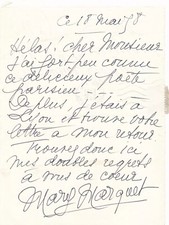 ce 18 mai 58
Hélas! cher Monsieur
j'ai fort peu connu
ce délicieux poète
parisien...
De plus, j'étais à
Lyon et trouve votre
lettre à mon retour
Trouvez donc ici
mes doubles regrets
à mes de coeur
Mary Marquet